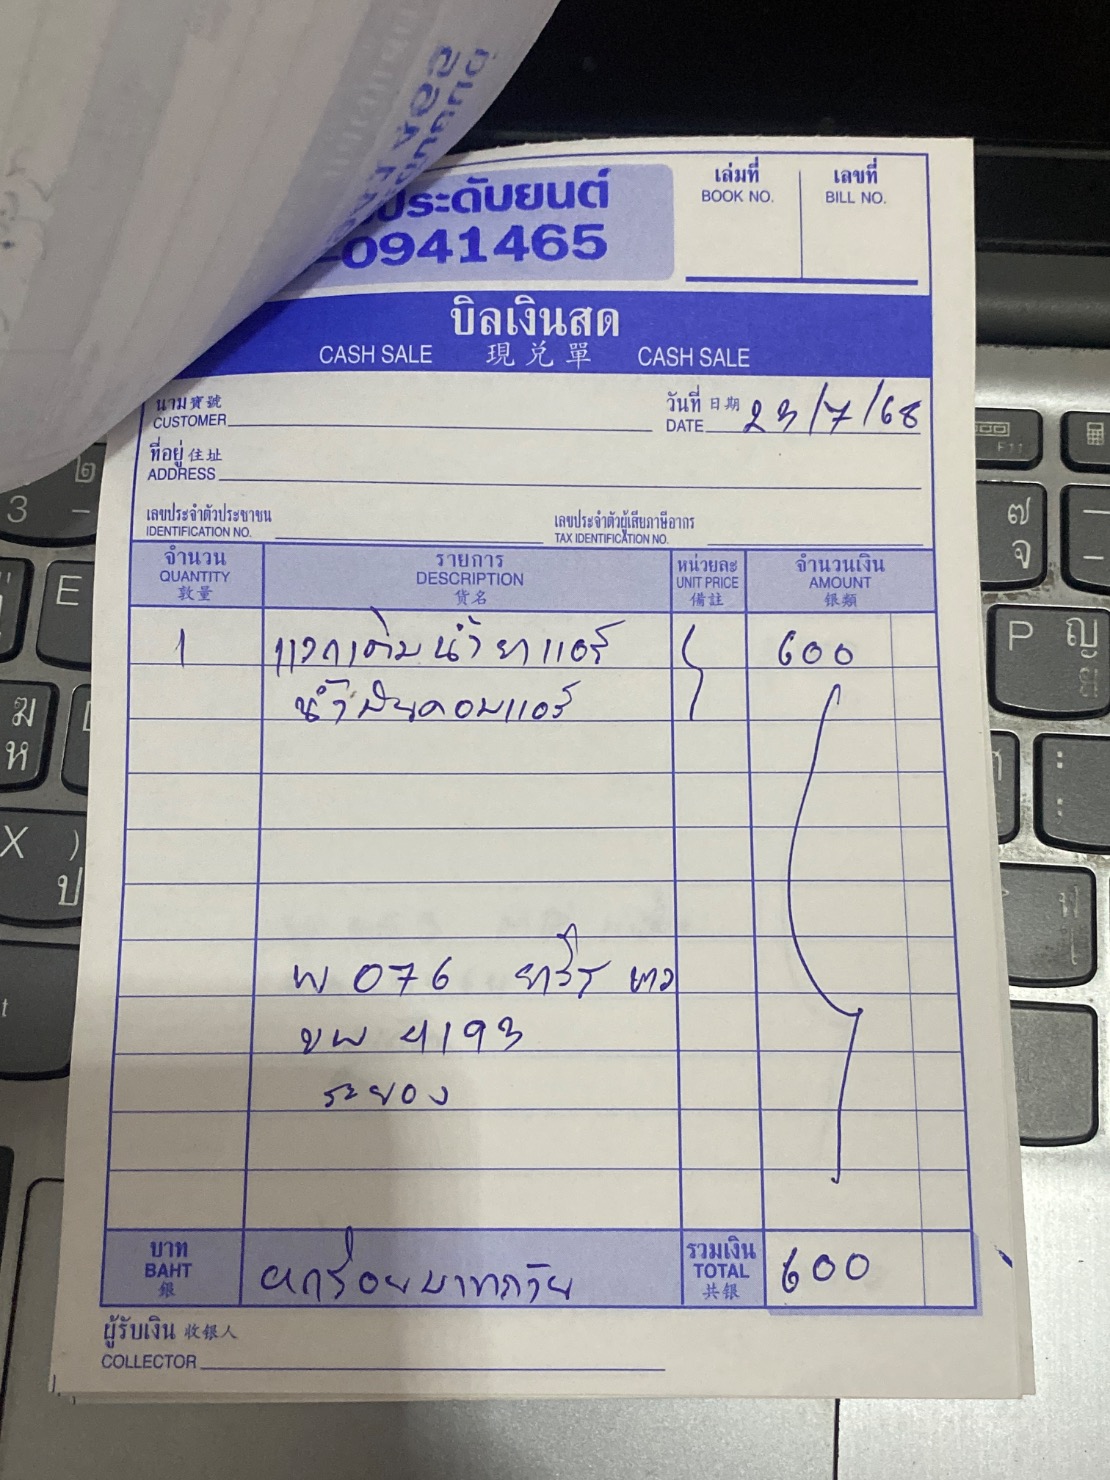 ประดับยนต์
-0941465
เล่มที่
BOOK NO.
เลขที่
BILL NO.
บิลเงินสด
CASH SALE 現兌單 CASH SALE
นาม寶號
CUSTOMER
วันที่ 日期
DATE 23/7/68
ที่อยู่ 住址
ADDRESS
เลขประจำตัวประชาชน
IDENTIFICATION NO.
เลขประจำตัวผู้เสียภาษีอากร
TAX IDENTIFICATION NO.
จำนวน
QUANTITY
數量
รายการ
DESCRIPTION
貨名
หน่วยละ
UNIT PRICE
備註
จำนวนเงิน
AMOUNT
銀類
1 แวคเติมน้ำยาแอร์ 600
น้ำมันคอมแอร์
พ 076 ยารีส
ขพ 4193
ระยอง
บาท
BAHT
銀
หกร้อยบาทถ้วน
รวมเงิน
TOTAL
共銀
600
ผู้รับเงิน 收銀人
COLLECTOR